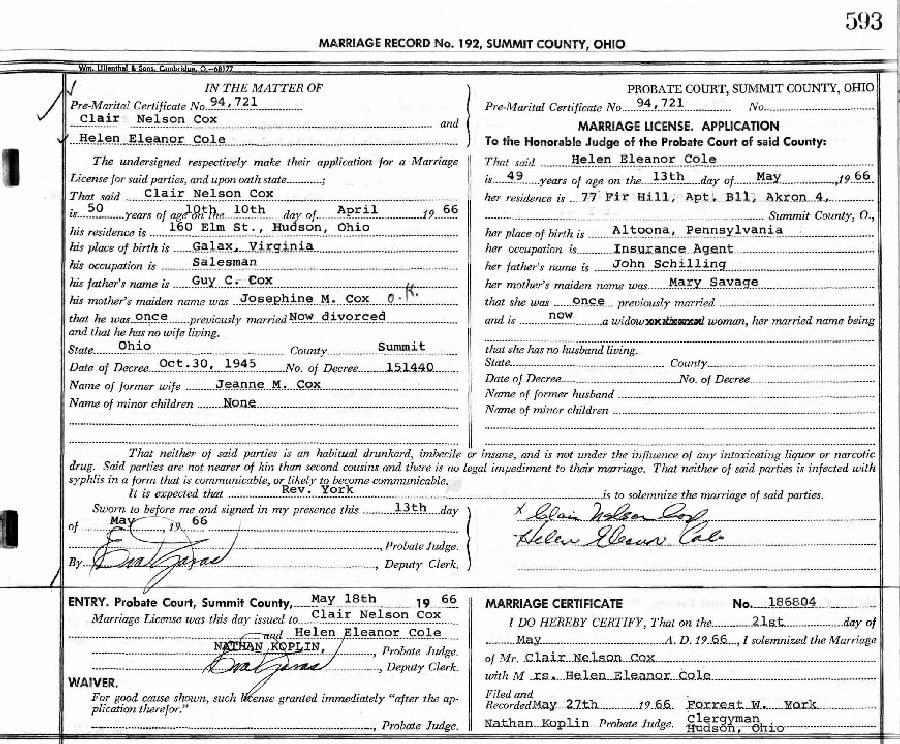 593
MARRIAGE RECORD No. 192, SUMMIT COUNTY, OHIO
Wm. Lilienthal & Sons, Cambridge, O.—68177
IN THE MATTER OF
Pre-Marital Certificate No. 94,721
Clair Nelson Cox and
Helen Eleanor Cole
The undersigned respectively make their application for a Marriage
License for said parties, and upon oath state ;
That said Clair Nelson Cox
is 50 years of age on the 10th 10th day of April 19 66
his residence is 160 Elm St., Hudson, Ohio
his place of birth is Galax, Virginia
his occupation is Salesman
his father's name is Guy C. Cox
his mother's maiden name was Josephine M. Cox O.K.
that he was once previously married Now divorced
and that he has no wife living.
State Ohio County Summit
Date of Decree Oct.30, 1945 No. of Decree 151440
Name of former wife Jeanne M. Cox
Name of minor children None
PROBATE COURT, SUMMIT COUNTY, OHIO
Pre-Marital Certificate No 94,721 No.
MARRIAGE LICENSE. APPLICATION
To the Honorable Judge of the Probate Court of said County:
That said Helen Eleanor Cole
is 49 years of age on the 13th day of May , 19 66
her residence is 77 Fir Hill, Apt. B11, Akron 4,
Summit County, O.,
her place of birth is Altoona, Pennsylvania
her occupation is Insurance Agent
her father's name is John Schilling
her mother's maiden name was Mary Savage
that she was once previously married
and is now a widow woman, her married name being
that she has no husband living.
State County
Date of Decree No. of Decree
Name of former husband
Name of minor children
That neither of said parties is an habitual drunkard, imbecile or insane, and is not under the influence of any intoxicating liquor or narcotic
drug. Said parties are not nearer of kin than second cousins and there is no legal impediment to their marriage. That neither of said parties is infected with
syphlis in a form that is communicable, or likely to become communicable.
It is expected that Rev. York is to solemnize the marriage of said parties.
Sworn to before me and signed in my presence this 13th day
of May , 19 66
, Probate Judge.
By , Deputy Clerk.
x Clair Nelson Cox
Helen Eleanor Cole
ENTRY. Probate Court, Summit County, May 18th 19 66
Marriage License was this day issued to Clair Nelson Cox
and Helen Eleanor Cole
NATHAN KOPLIN, , Probate Judge.
, Deputy Clerk.
WAIVER.
For good cause shown, such license granted immediately "after the ap-
plication therefor."
, Probate Judge.
MARRIAGE CERTIFICATE No. 186804
I DO HEREBY CERTIFY, That on the 21st day of
May A. D. 19 66, I solemnized the Marriage
of Mr. Clair Nelson Cox
with M rs. Helen Eleanor Cole
Filed and
Recorded May 27th 19 66 Forrest W. York
Nathan Koplin Probate Judge. Clergyman
Hudson, Ohio